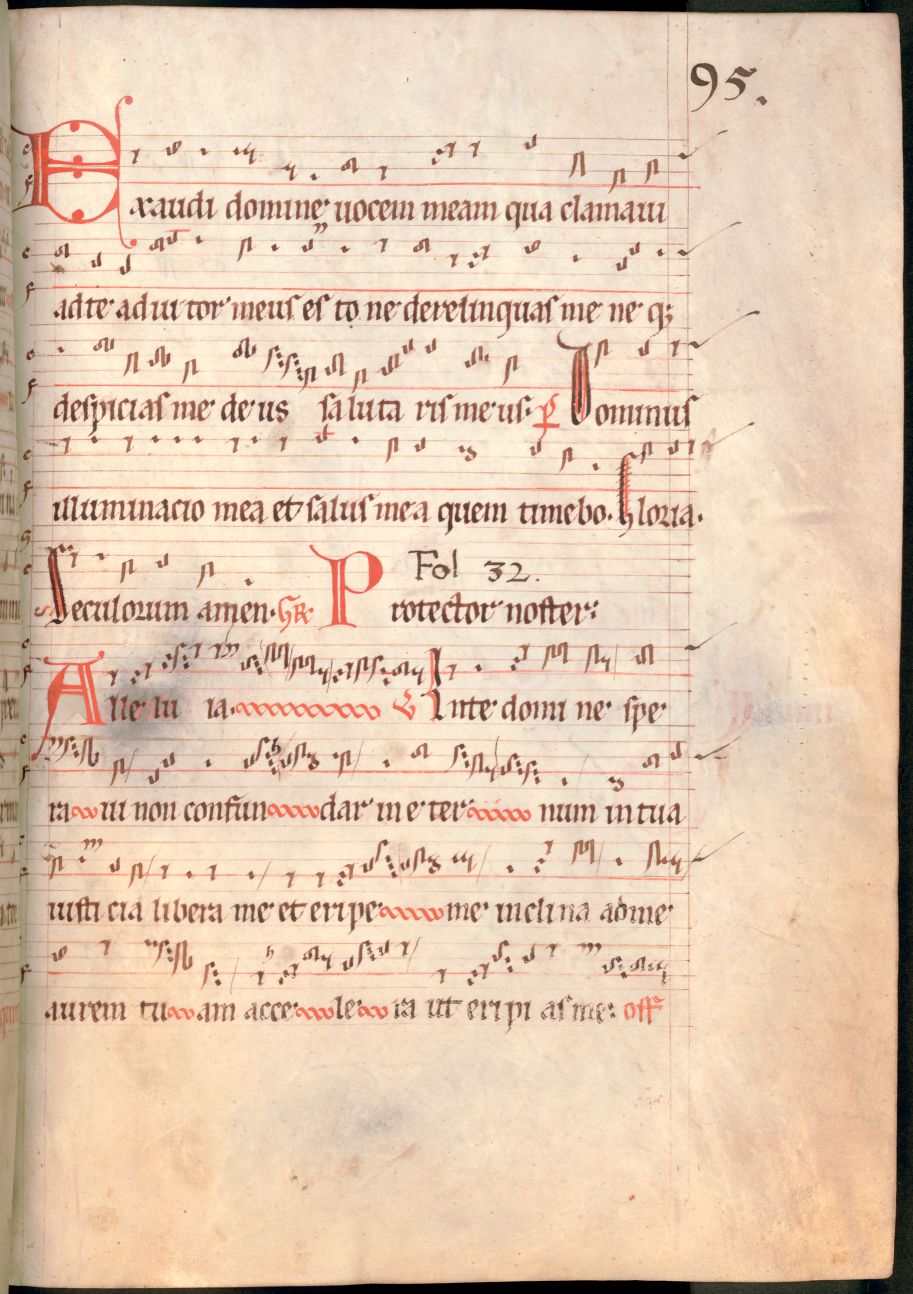 95.
Exaudi domine uocem meam qua clamaui
ad te adiu tor meus es to ne derelinquas me ne q;
despicias me de us saluta ris meus. P Dominus
illuminacio mea et salus mea quem timebo. Gloria.
Fol 32.
Seculorum amen. GR Protector noster:
Alle lu ia. V In te domi ne spe
ra ui non confun dar in e ter num in tua
iusti cia libera me et eripe me inclina ad me
aurem tu am acce le ra ut eripi as me: off